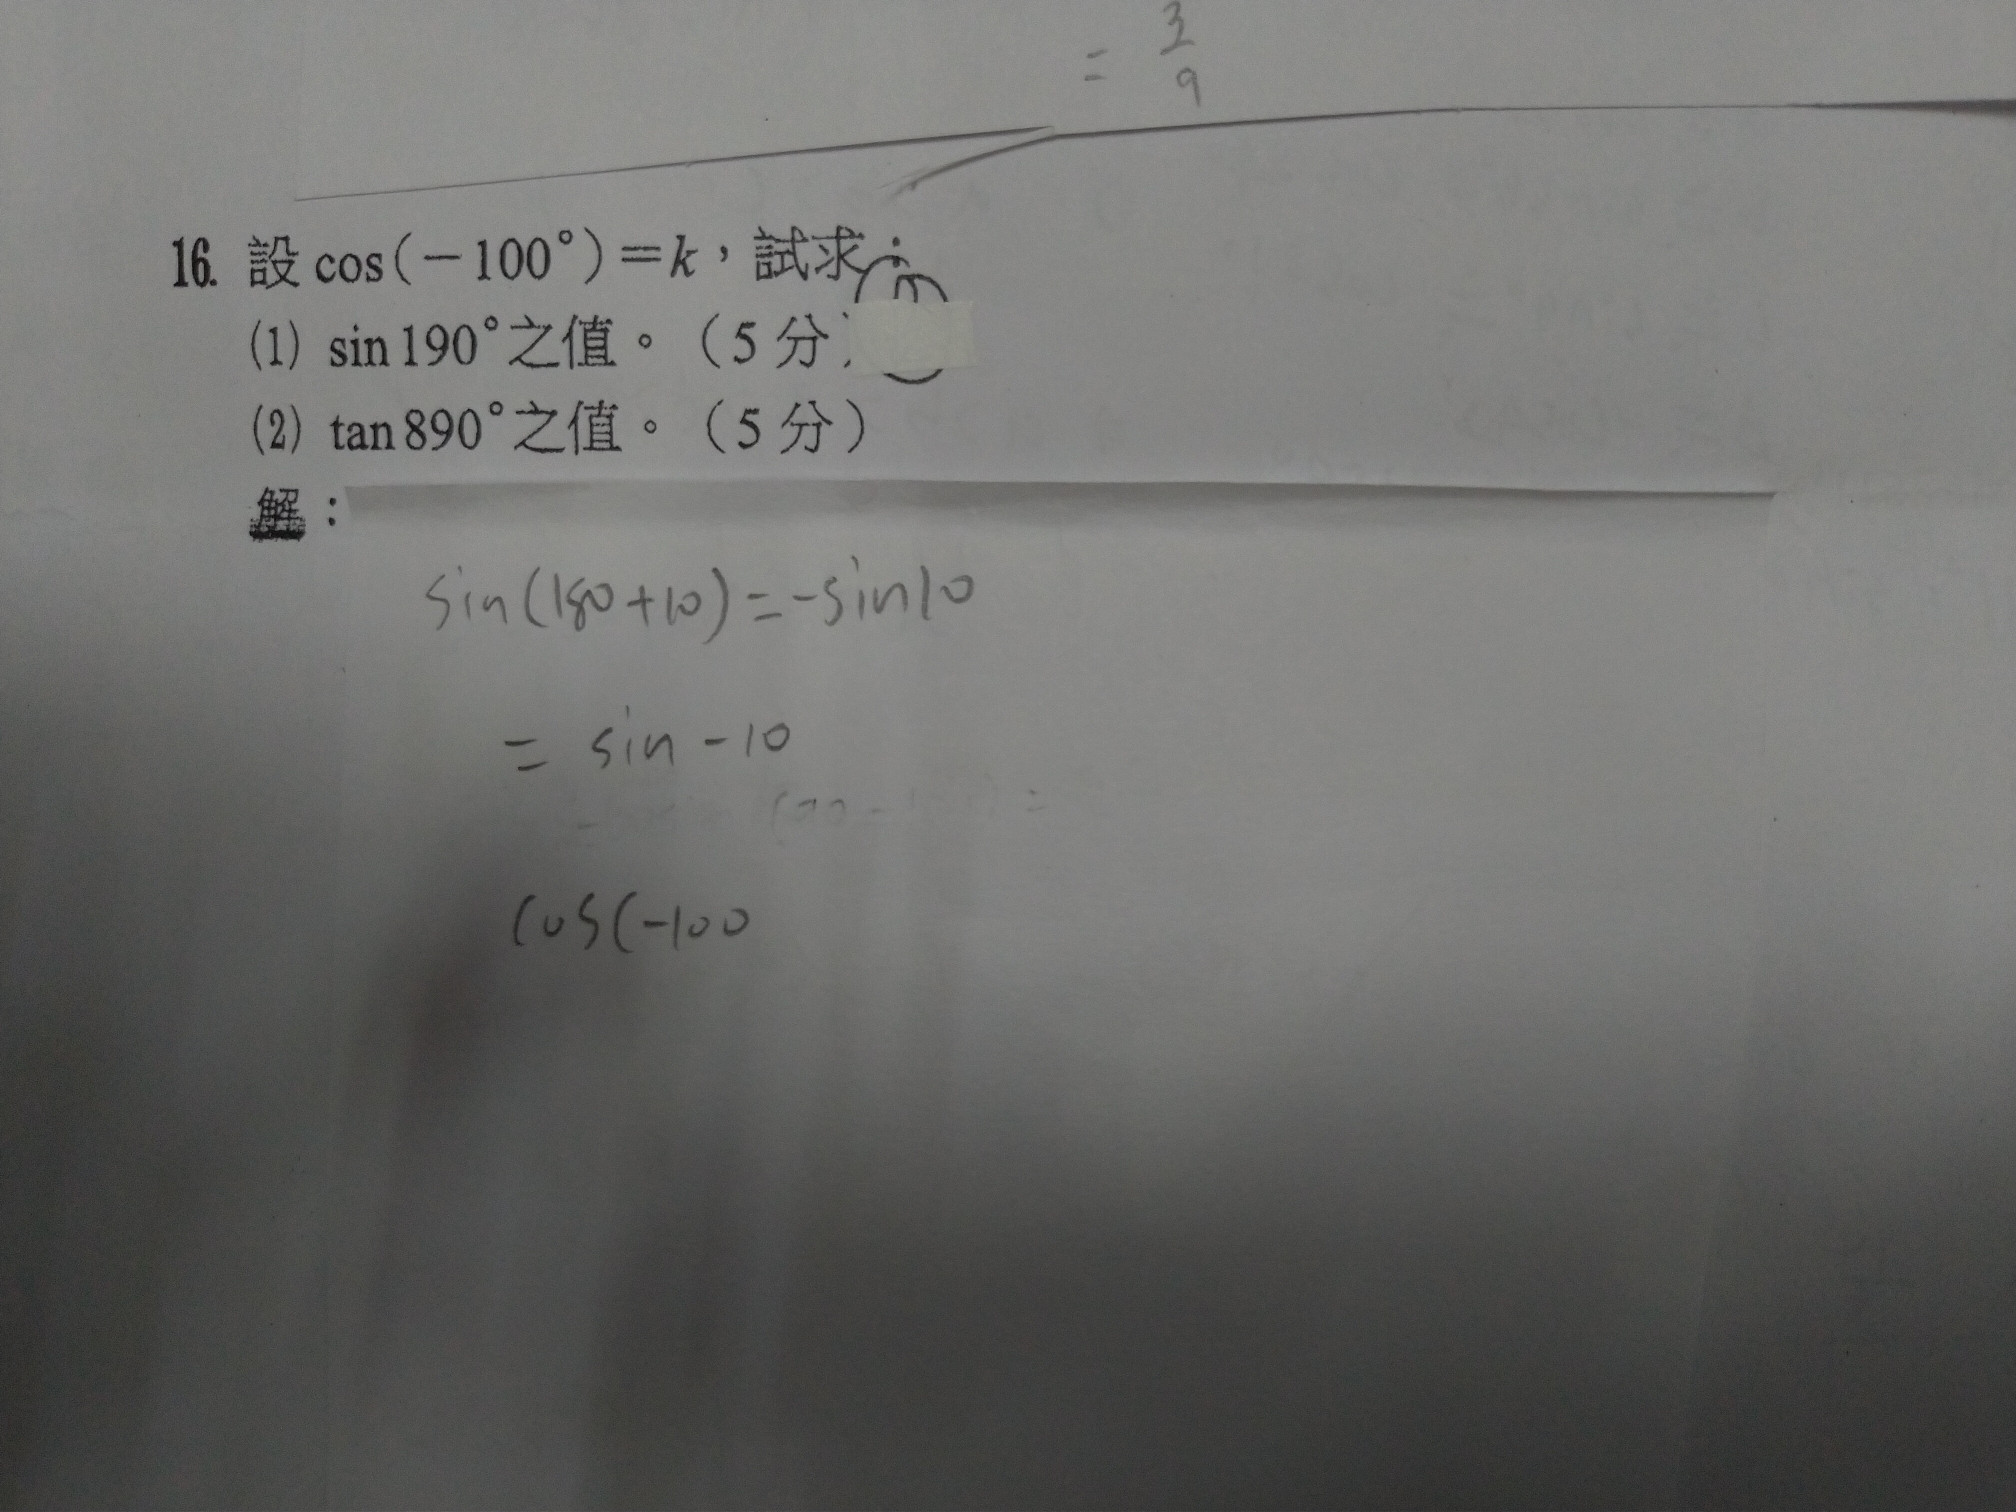 = 3
9
16. 設 cos(－100°)＝k，試求：
(1) sin190°之值。（5 分）
(2) tan890°之值。（5 分）
解：
sin(180+10)=-sin10
= sin -10
cos(-100